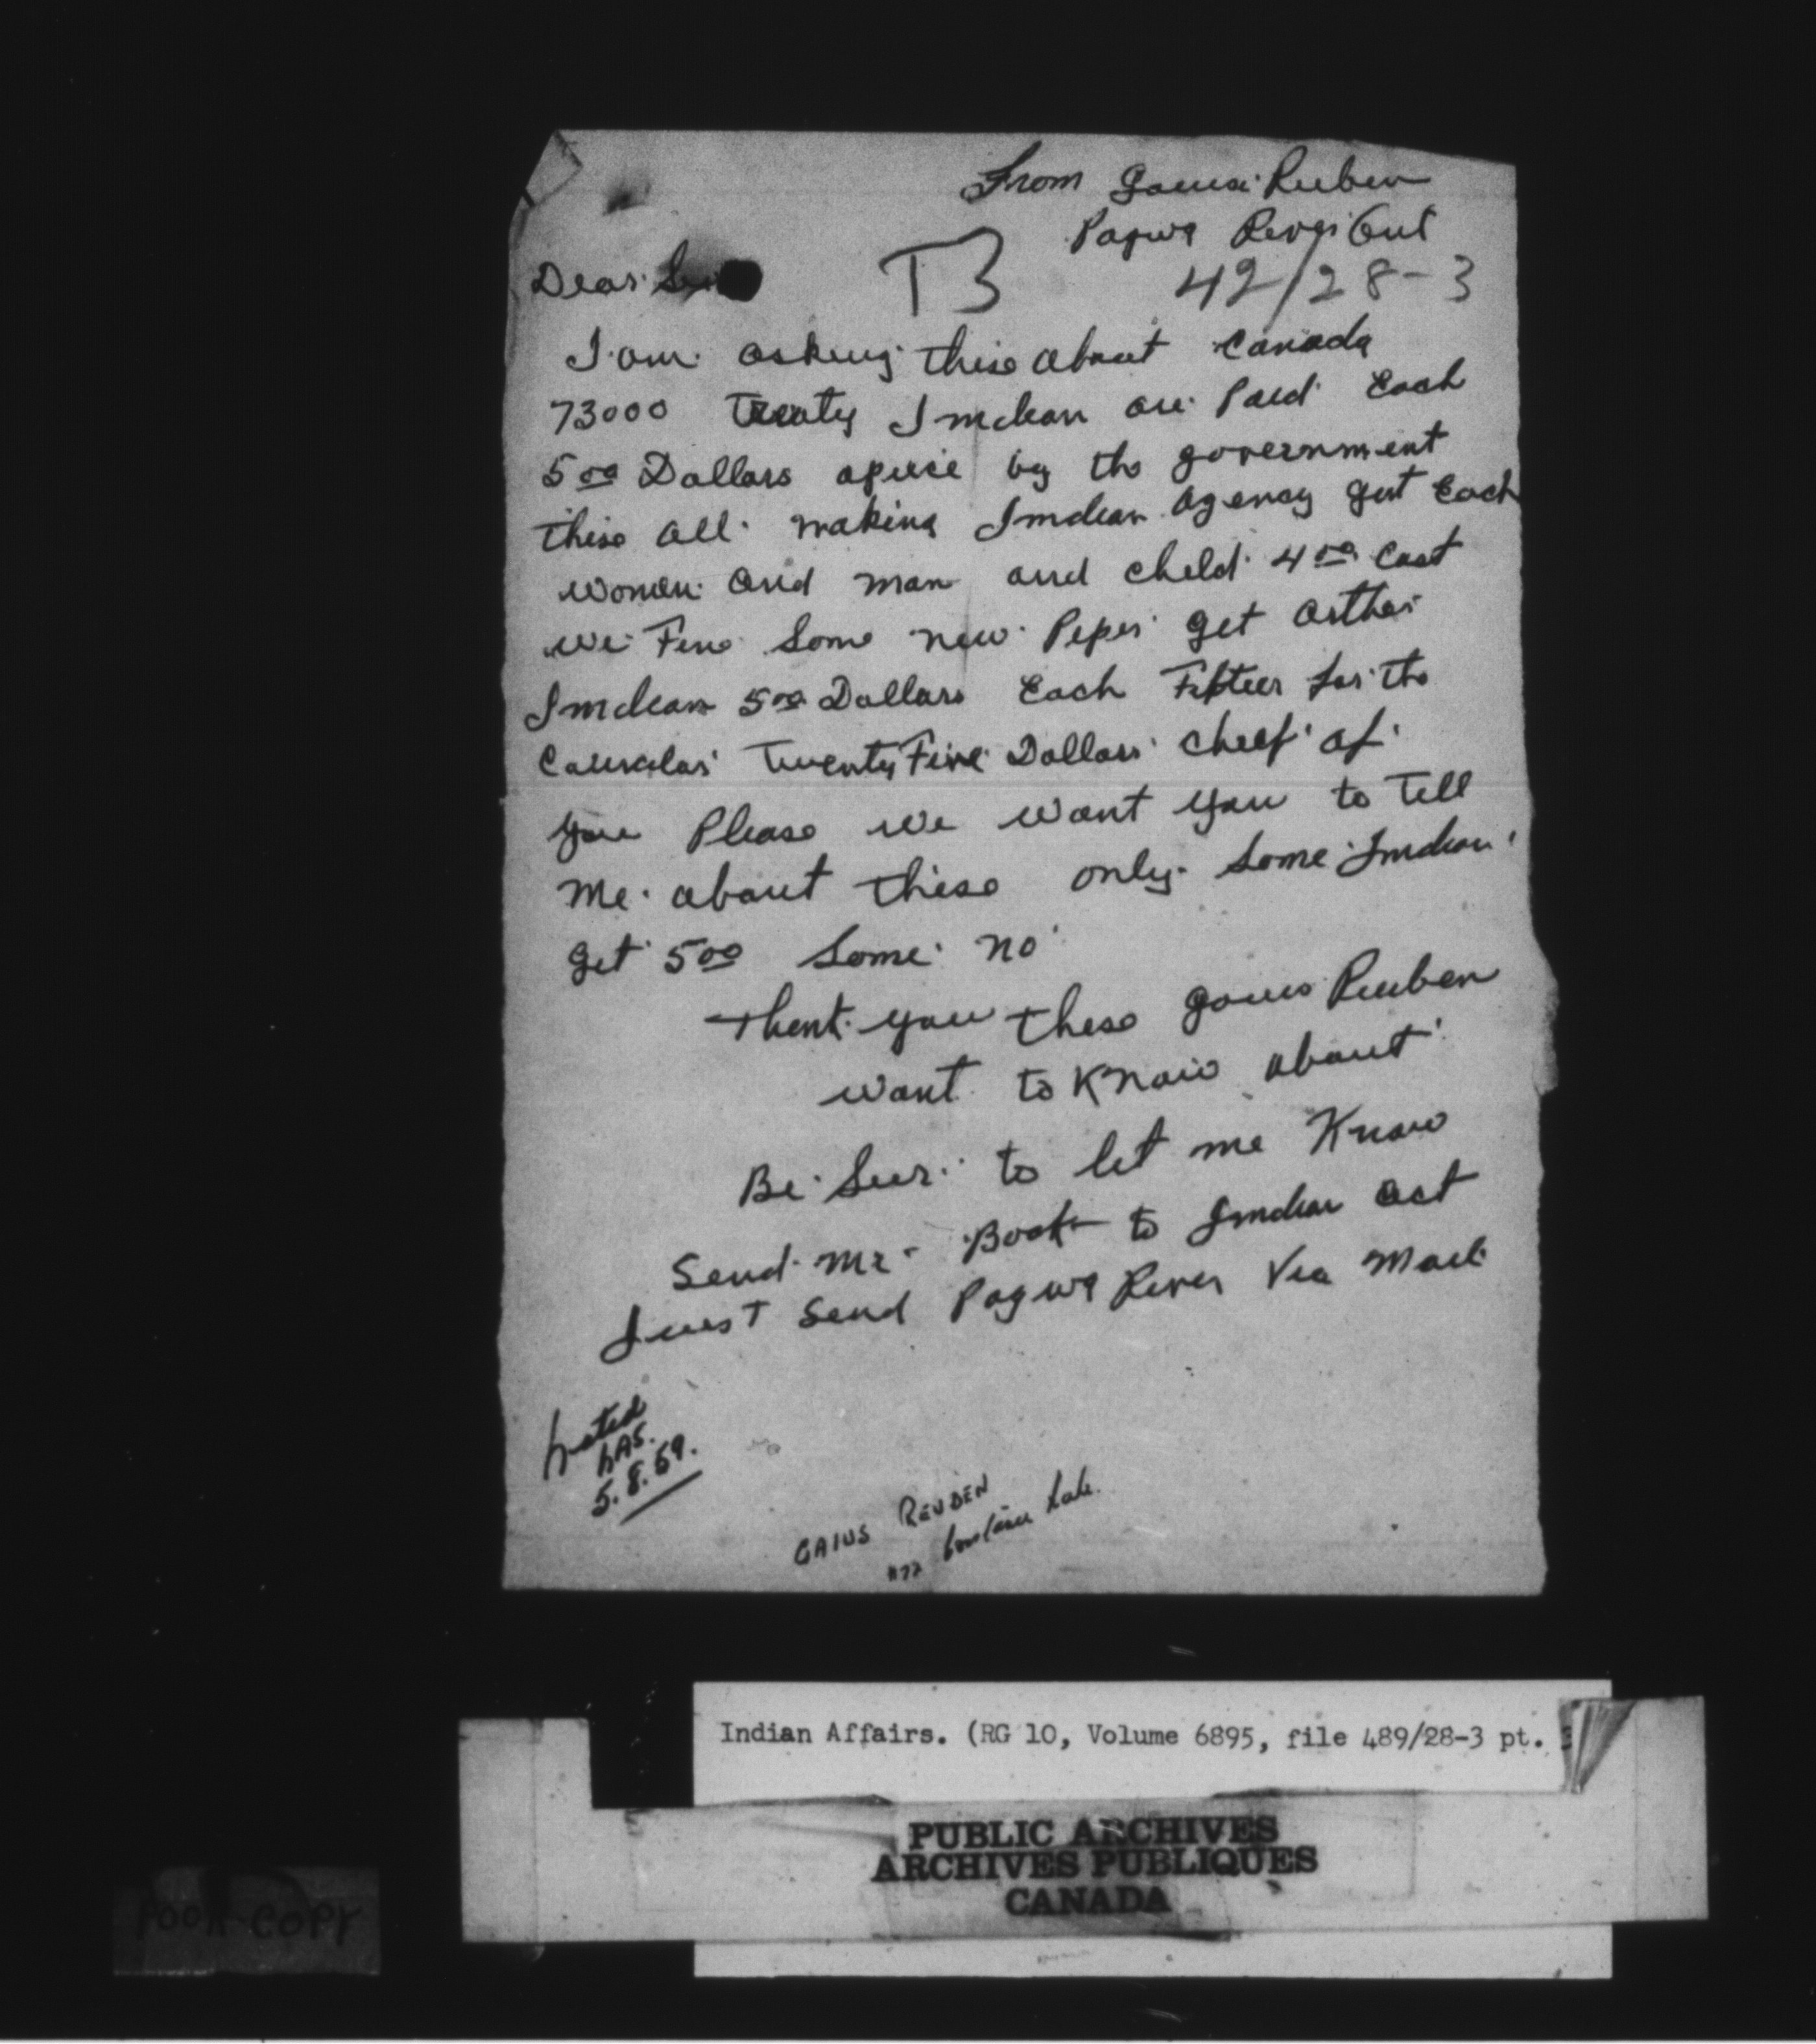 From Gaius Reuben
Pagwa River Ont
Dear Sir
T3
42/28-3
I am asking this about Canada
73000 Treaty Indean are Paid Each
5 00 Dollars apiece by the government
this all making Indean agency get Each
women and man and child 4 00 Cost
we Fine Some new Peper get arther
Indean 5 00 Dollars Each Fifteer for the
Counclar Twenty Five Dollars cheef of
you Please we want you to Tell
me about these only Some Indean
get 5 00 Some no
Thenk you these gaius Reuben
want to Know about
Be Suer to let me Know
Send me Book to Indean act
Juest Send Pagwa River Via Mail
Noted
5.8.59.
GAIUS REUBEN
#72 Constance Lake.
POOR COPY
Indian Affairs. (RG 10, Volume 6895, file 489/28-3 pt. 3
PUBLIC ARCHIVES
ARCHIVES PUBLIQUES
CANADA